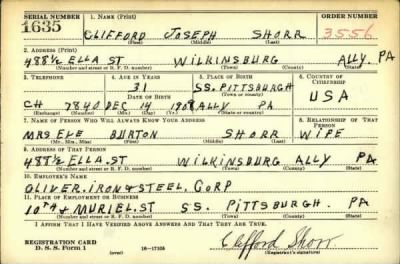 SERIAL NUMBER 1. NAME (Print) ORDER NUMBER
1635 CLIFFORD JOSEPH SHORR 3556
(First) (Middle) (Last)
2. ADDRESS (Print)
488½ ELLA ST WILKINSBURG ALLY. PA
(Number and street or R. F. D. number) (Town) (County) (State)
3. TELEPHONE 4. AGE IN YEARS 5. PLACE OF BIRTH 6. COUNTRY OF CITIZENSHIP
31 SS. PITTSBURGH
DATE OF BIRTH (Town or county)
CH 7840 DEC 14 1908 ALLY PA USA
(Exchange) (Number) (Mo.) (Day) (Yr.) (State or country)
7. NAME OF PERSON WHO WILL ALWAYS KNOW YOUR ADDRESS 8. RELATIONSHIP OF THAT PERSON
MRS EVE BURTON SHORR WIFE
(Mr., Mrs., Miss) (First) (Middle) (Last)
9. ADDRESS OF THAT PERSON
488½ ELLA. ST WILKINSBURG ALLY PA
(Number and street or R. F. D. number) (Town) (County) (State)
10. EMPLOYER'S NAME
OLIVER. IRON & STEEL. CORP
11. PLACE OF EMPLOYMENT OR BUSINESS
10TH & MURIEL. ST SS. PITTSBURGH. PA
(Number and street or R. F. D. number) (Town) (County) (State)
I AFFIRM THAT I HAVE VERIFIED ABOVE ANSWERS AND THAT THEY ARE TRUE.
REGISTRATION CARD
D. S. S. Form 1 (over) 16—17105 Clifford Shorr
(Registrant's signature)